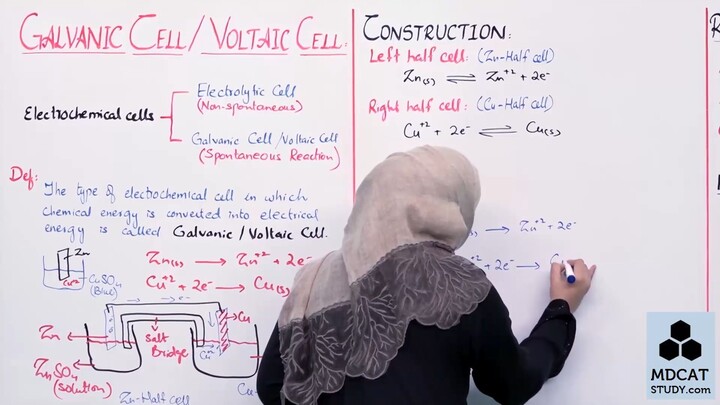 GALVANIC CELL / VOLTAIC CELL:
Electrochemical cells
Electrolytic Cell
(Non-spontaneous)
Galvanic Cell / Voltaic Cell
(Spontaneous Reaction)
Def:
The type of electrochemical cell in which
chemical energy is converted into electrical
energy is called Galvanic / Voltaic Cell.
Zn
CuSO₄
(Blue)
Cu⁺²
Zn(s) → Zn⁺² + 2e⁻
Cu⁺² + 2e⁻ → Cu(s)
→ e⁻ →
Zn
Cu
Salt
Bridge
Cu⁺²
ZnSO₄
(solution)
Zn-Half cell
Cu-
CONSTRUCTION:
Left half cell: (Zn-Half cell)
Zn(s) ⇌ Zn⁺² + 2e⁻
Right half cell: (Cu-Half cell)
Cu⁺² + 2e⁻ ⇌ Cu(s)
(s) → Zn⁺² + 2e⁻
⁺² + 2e⁻ → Cu
R
MDCAT
STUDY.com